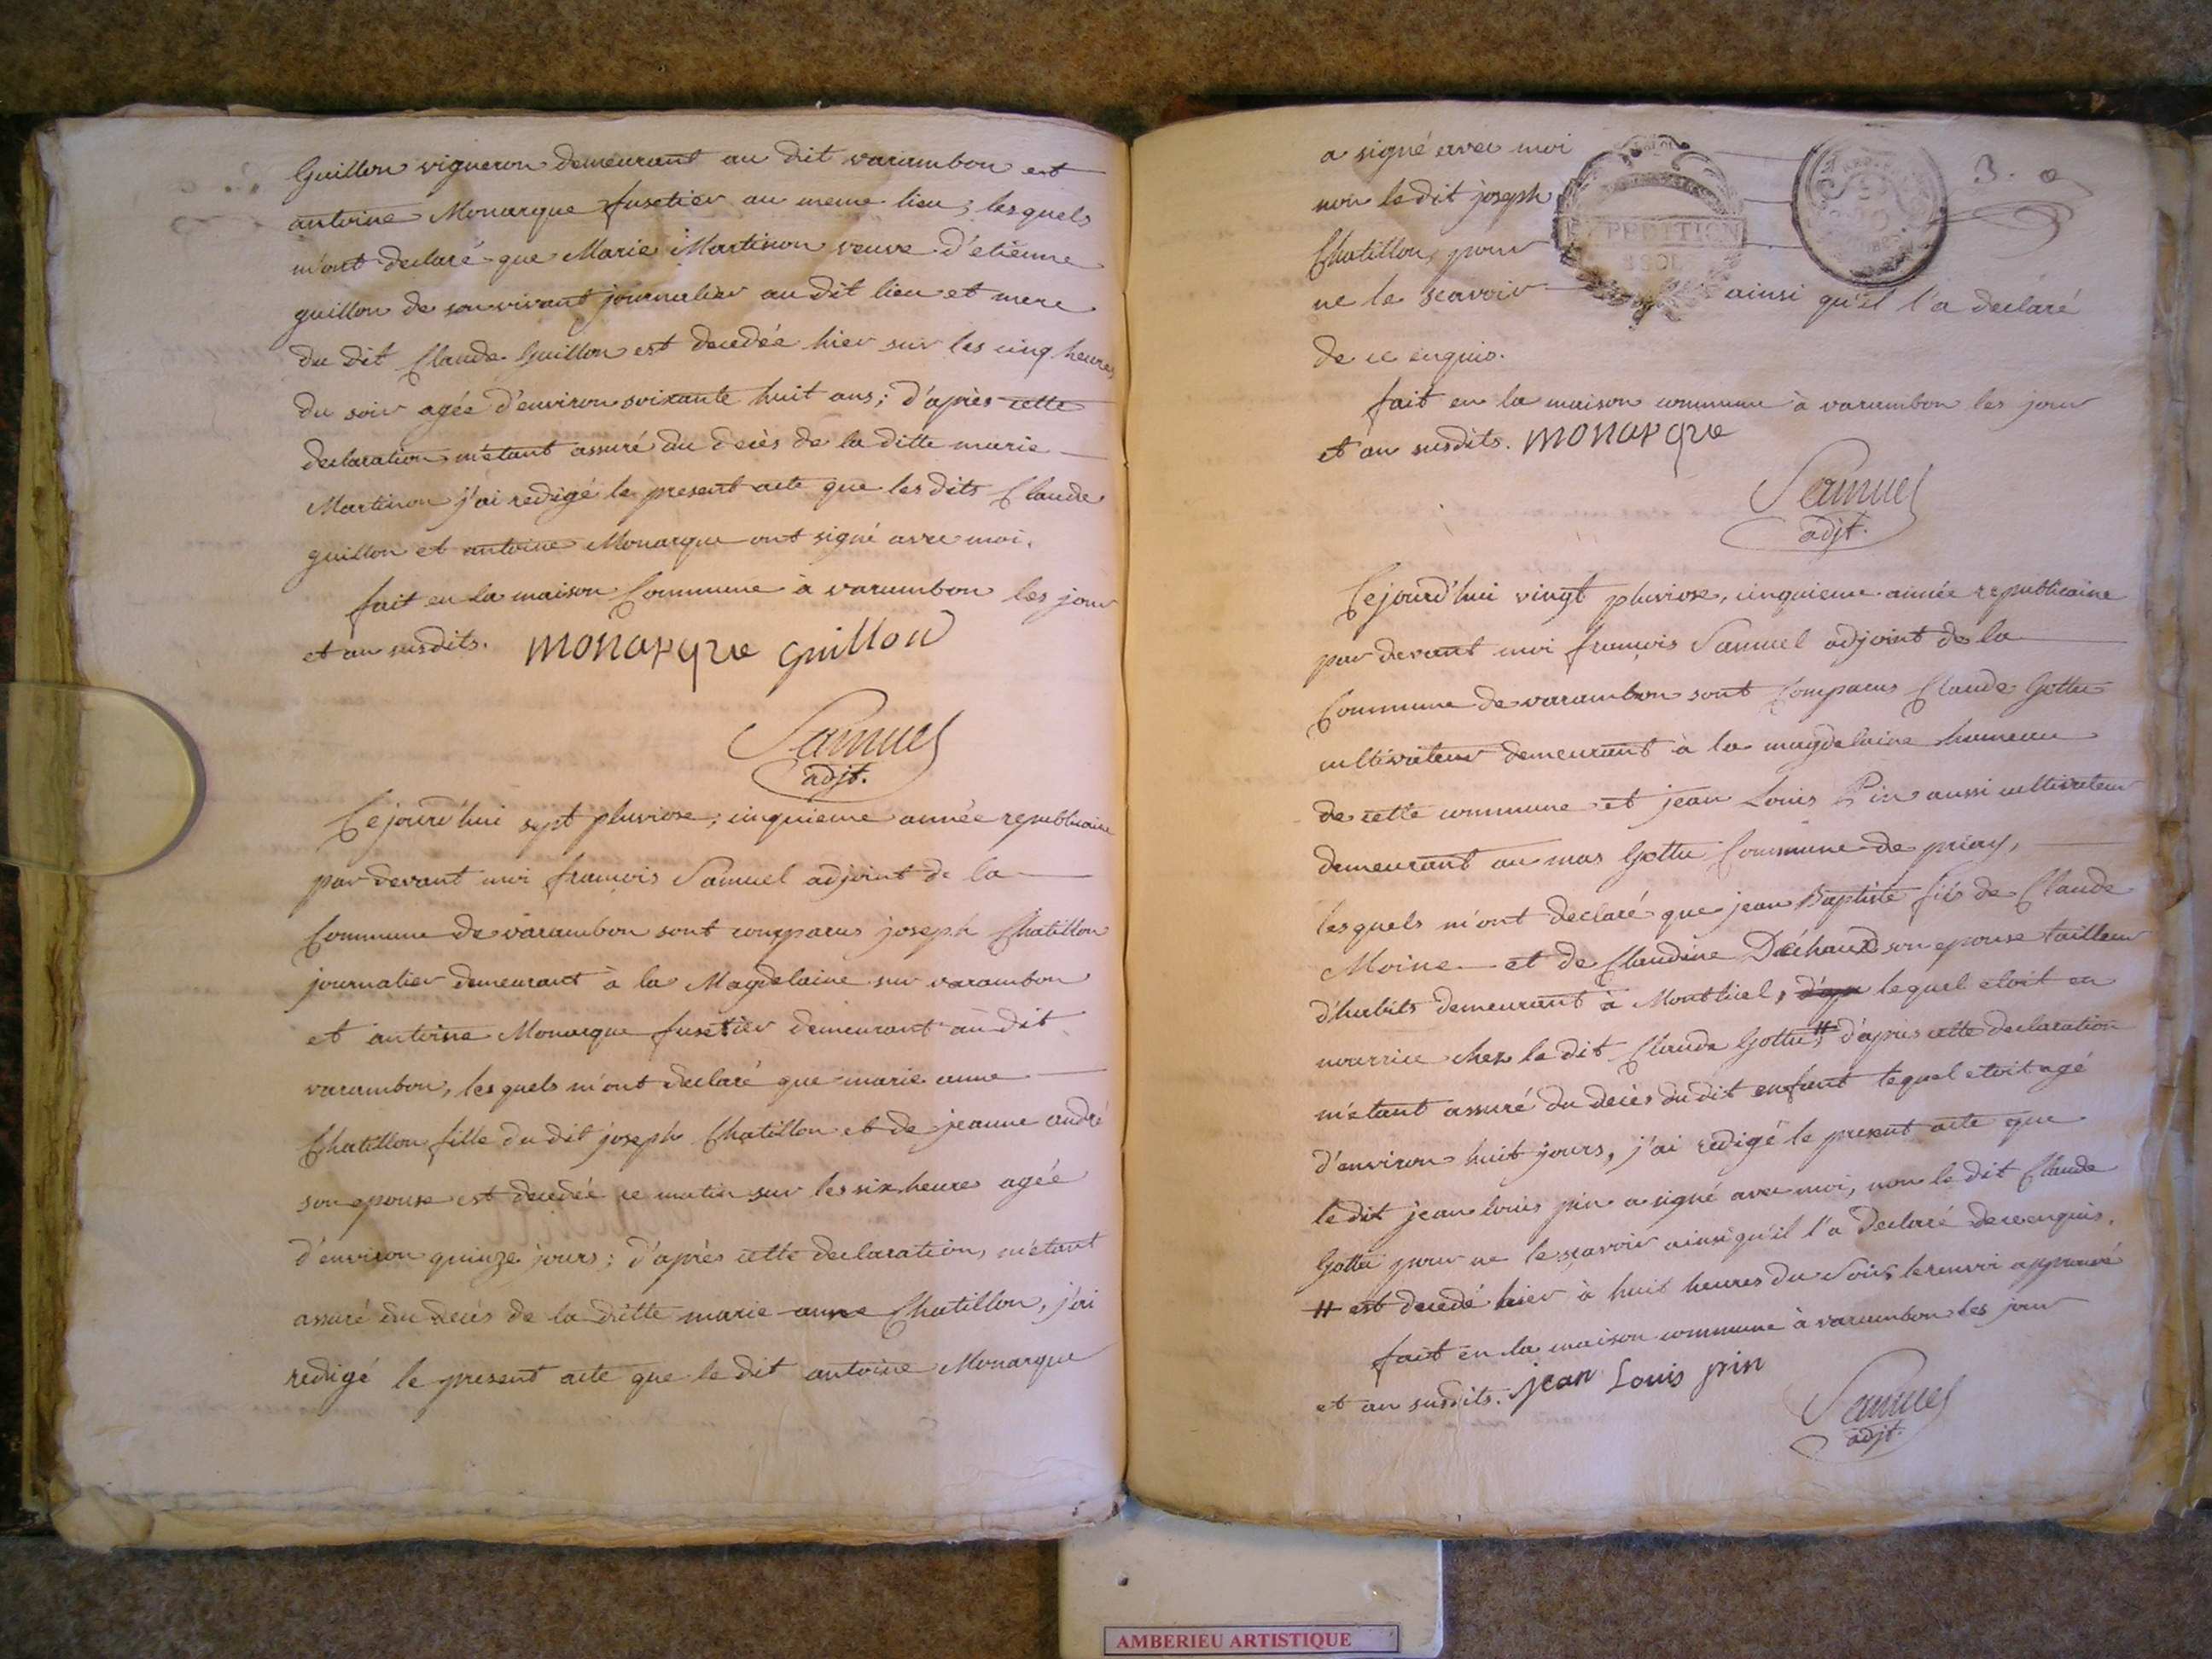 Guillon vigneron demeurant au dit varambon est
antoine Monarque fusetier au meme lieu; lesquels
m'ont declaré que Marie Martinon veuve d'etienne
guillon de son vivant journalier au dit lieu et mere
du dit Claude Guillon est decedée hier sur les cinq heures
du soir agée d'environ soixante huit ans; d'après cette
declaration m'etant assuré du decès de la ditte marie
Martinon j'ai redigé le present acte que les dits Claude
guillon et antoine Monarque ont signé avec moi.
fait en la maison Commune à varambon les jour
et an susdits. monarque guillon
Samuel
adjt.
Cejourd'hui sept pluviose, cinquieme année republicaine
par devant moi françois Samuel adjoint de la
Commune de varambon sont comparus joseph Chatillon
journalier demeurant à la Magdelaine sur varambon
et antoine Monarque fusetier demeurant au dit
varambon, lesquels m'ont declaré que marie anne
Chatillon fille du dit joseph Chatillon et de jeanne andré
son epouse est decedée ce matin sur les six heures agée
d'environ quinze jours; d'après cette declaration, m'etant
assuré du decès de la ditte marie anne Chatillon, j'ai
redigé le present acte que le dit antoine Monarque
3.
a signé avec moi
non le dit joseph
Chatillon, pour
EXPEDITION
ne le scavoir ainsi qu'il l'a declaré
de ce enquis.
fait en la maison commune à varambon les jour
et an susdits. monarque
Samuel
adjt.
Cejourd'hui vingt pluviose, cinquieme année republicaine
par devant moi françois Samuel adjoint de la
Commune de varambon sont Comparus Claude Gottu
cultivateur demeurant à la magdelaine hameau
de cette commune et jean Louis Pin aussi cultivateur
demeurant au mas Gottu Commune de priay,
lesquels m'ont declaré que jean Baptiste fils de Claude
Moine et de Claudine Dechaud son epouse tailleur
d'habits demeurant à Montluel, lequel etoit en
nourrice chez le dit Claude Gottu # d'après cette declaration
m'etant assuré du decès du dit enfant lequel etoit agé
d'environ huit jours, j'ai redigé le present acte que
le dit jean louis pin a signé avec moi, non le dit Claude
Gottu pour ne le scavoir ainsi qu'il l'a declaré de ce enquis.
# est decedé hier à huit heures du Soir, le renvoi approuvé
fait en la maison commune à varambon les jour
et an susdits. jean Louis pin
Samuel
adjt.
AMBERIEU ARTISTIQUE